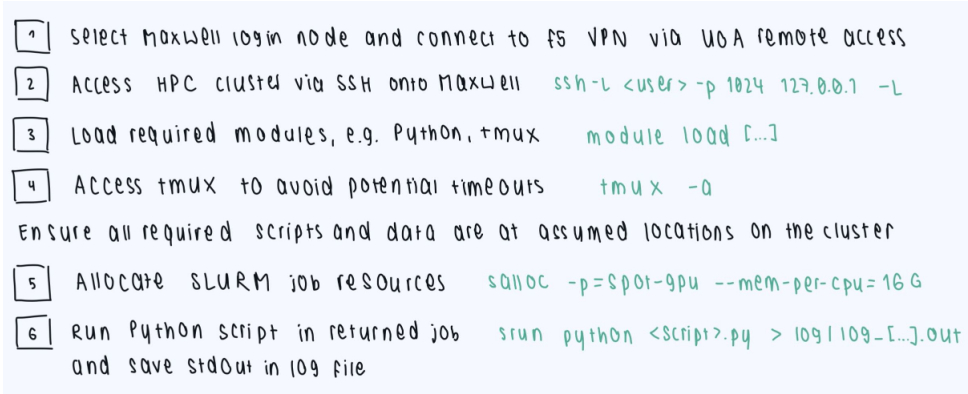 1 Select Maxwell login node and connect to f5 VPN via UoA remote access
2 Access HPC cluster via SSH onto Maxwell ssh -L <user> -p 1024 127.0.0.1 -L
3 Load required modules, e.g. Python, tmux module load [...]
4 Access tmux to avoid potential timeouts tmux -a
Ensure all required scripts and data are at assumed locations on the cluster
5 Allocate SLURM job resources salloc -p=spot-gpu --mem-per-cpu=16G
6 Run Python script in returned job srun python <script>.py > log/log_[...].out
and save stdout in log file